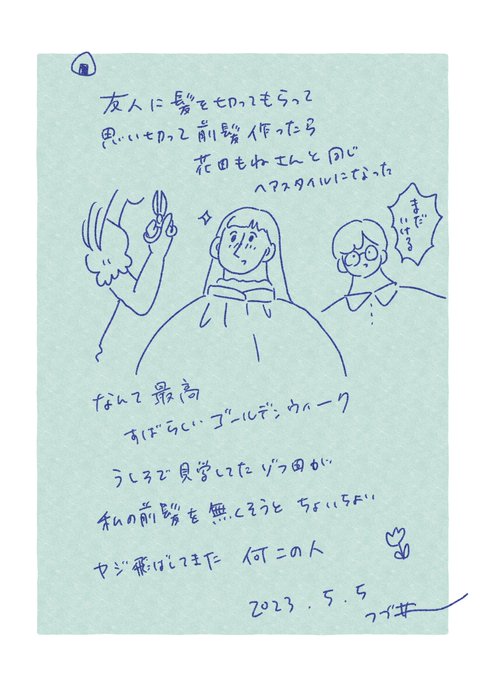 友人に髪を切ってもらって
思い切って前髪作ったら
花田もねさんと同じ
ヘアスタイルになった
まだ
いける
なんて最高
すばらしいゴールデンウィーク
うしろで見学してたゾフ田が
私の前髪を無くそうとちょいちょい
ヤジ飛ばしてきた 何この人
2023.5.5
つづ井